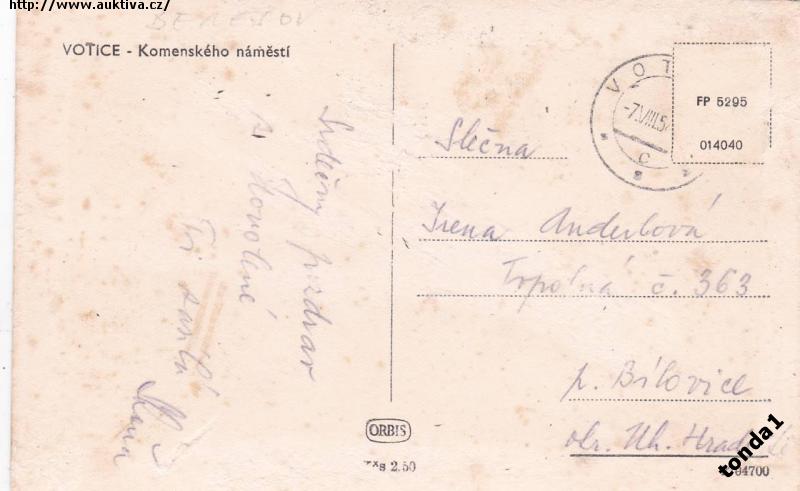 http://www.auktiva.cz/
BENEŠOV
VOTICE - Komenského náměstí
Srdečný pozdrav
z dovolené
Ti zasílá
VOT
-7.VIII.5
c
FP 5295
014040
Slečna
Irena Anderlová
Trpolná č. 363
p. Bílovice
okr. Uh. Hradiště
ORBIS
Kčs 2.50
04700
tonda1